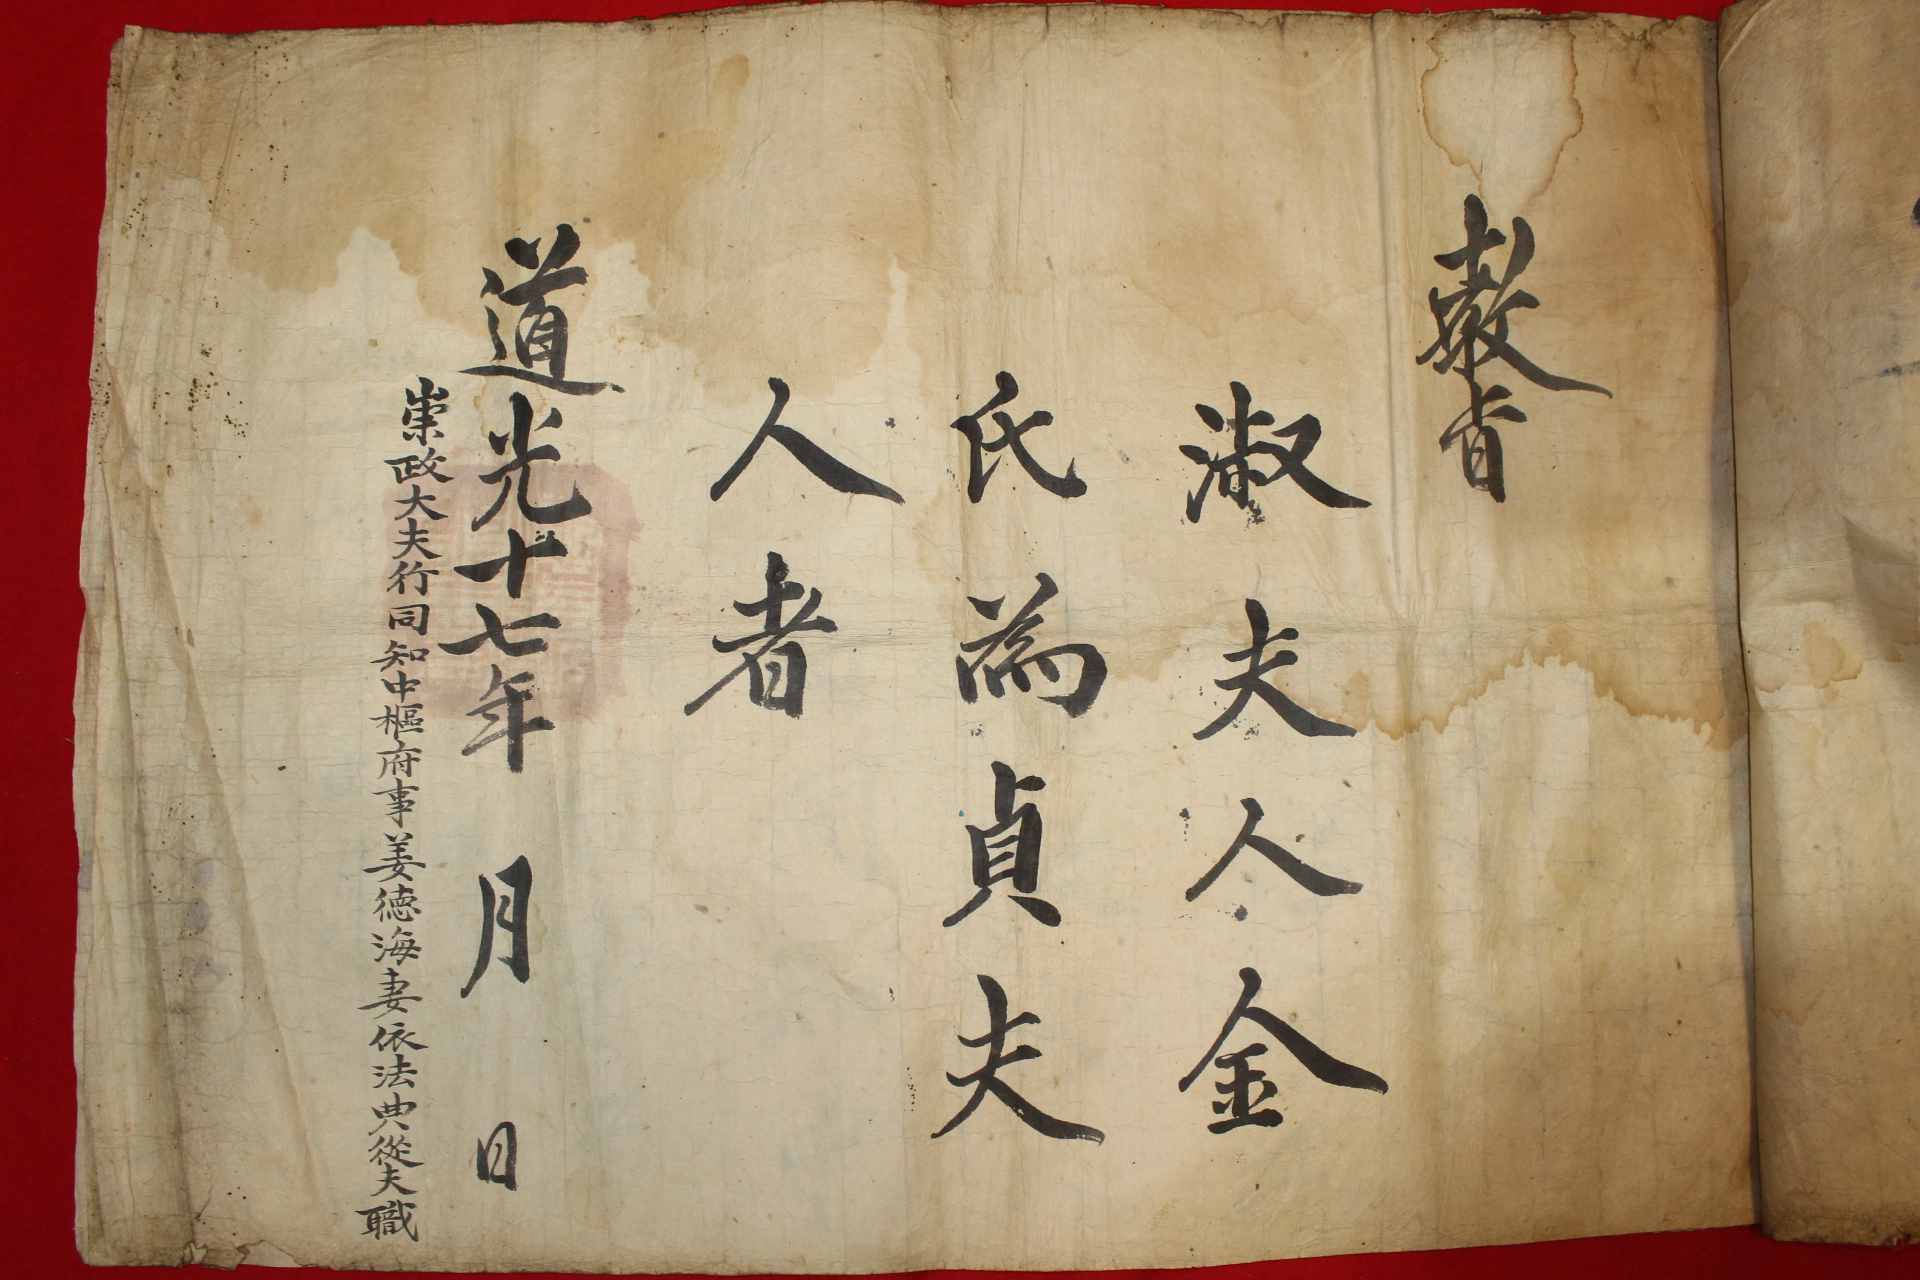 敎旨
淑夫人金
氏爲貞夫
人者
道光十七年 月 日
崇政大夫行同知中樞府事姜德海妻依法典從夫職